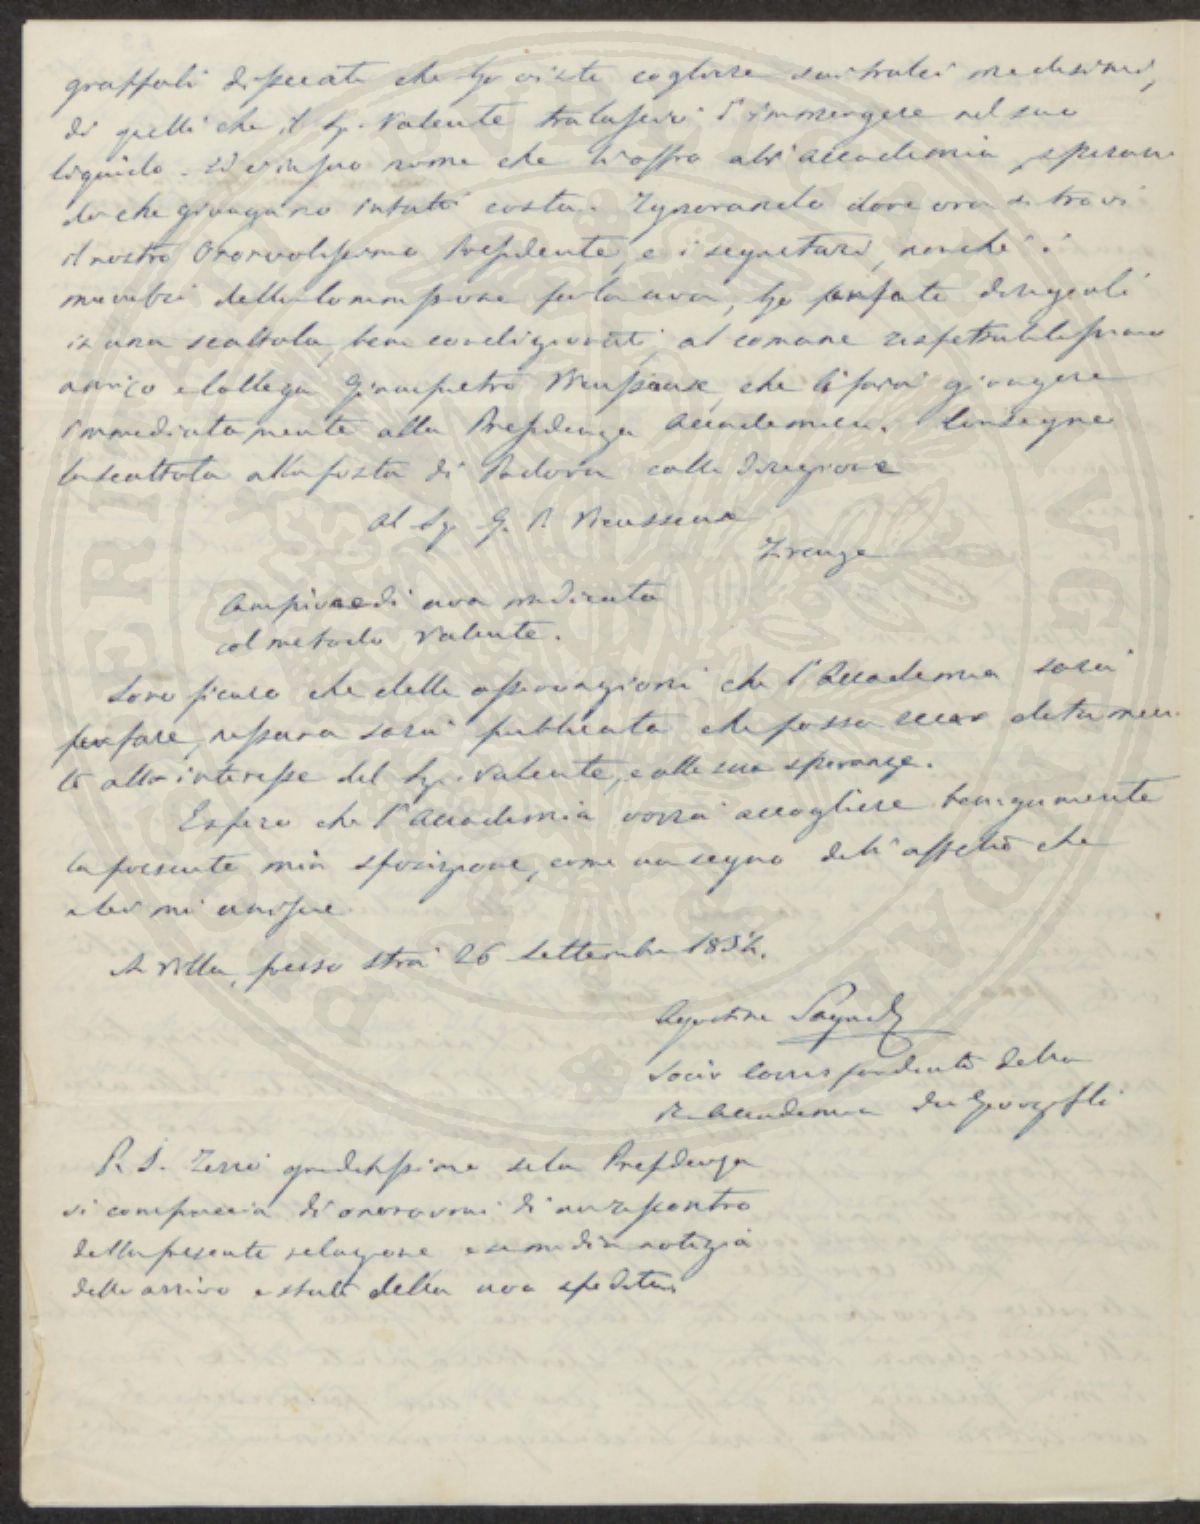 grappoli disseccati che ho visto cogliere sui tralci medesimi,
di quelli che il Sig. Valente tralasciò d'immergere nel suo
liquido. Ed è in suo nome che li offro all'Accademia, speran-
do che giungano intatti costà. Ignorando dove ora si trovi
il nostro Onorevolissimo Presidente, e i segretari, nonchè i
membri della Commissione per la uva, ho pensato dirigerli
in una scattola, ben condizionati, al comune rispettabilissimo
amico e collega Giampietro Vieusseux, che li farà giungere
immediatamente alla Presidenza Accademica. Consegno
la scattola alla posta di Padova colla direzione
Al Sig. G. P. Vieusseux
Firenze
Campione di uva medicata
col metodo Valente.
Sono sicuro che delle osservazioni che l'Accademia sarà
per fare, nessuna sarà pubblicata che possa recar detrimen-
to allo interesse del Sig. Valente, e alle sue speranze.
Espero che l'Accademia vorrà accogliere benignamente
la presente mia sposizione, come un segno dell'affetto che
a lei mi unisce
A Villa, presso Strà 26 Settembre 1854.
Agostino
Socio Corrispondente della
R. Accademia dei Georgofili
P. S. Terrei graditissimo se la Presidenza
si compiaccia di onorarmi di un riscontro
della presente relazione e se mi dia notizia
dello arrivo e stato della uva spedita